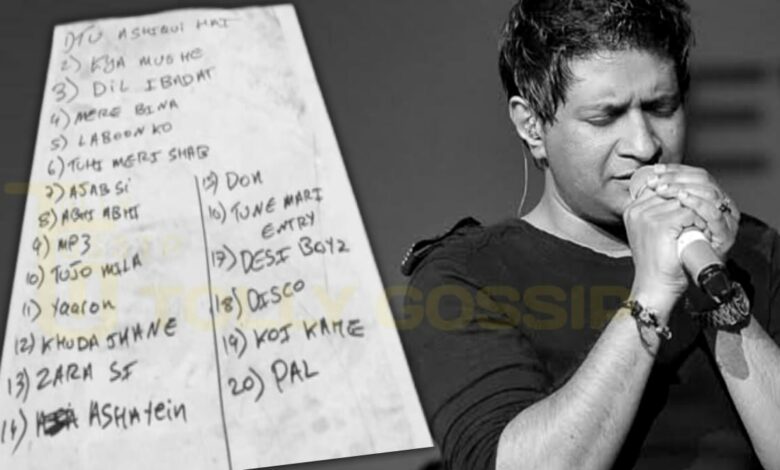 1) TU ASHIQUI HAI
2) KYA MUGHE
3) DIL IBADAT
4) MERE BINA
5) LABOON KO
6) TUHI MERI SHAB
7) AJAB SI
8) ABHI ABHI
9) MP3
10) TUJO MILA
11) Yaaron
12) KHUDA JHANE
13) ZARA SI
14) ASHAYein
15) DON
16) TUNE MARI
ENTRY
17) DESI BOYZ
18) DISCO
19) KOI KAHE
20) PAL
TOLLY GOSSIP